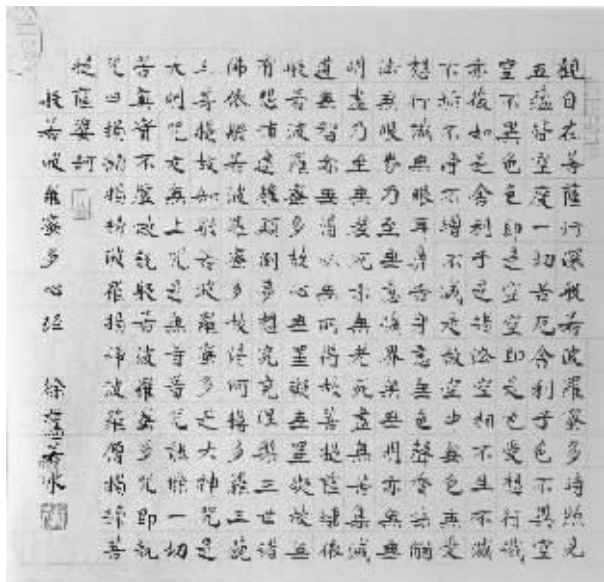 觀自在菩薩行深般若波羅蜜多時照見
五蘊皆空度一切苦厄舍利子色不異空
空不異色色即是空空即是色受想行識
亦復如是舍利子是諸法空相不生不滅
不垢不淨不增不減是故空中無色無受
想行識無眼耳鼻舌身意無色聲香味觸
法無眼界乃至無意識界無無明亦無無
明盡乃至無老死亦無老死盡無苦集滅
道無智亦無得以無所得故菩提薩埵依
般若波羅蜜多故心無罣礙無罣礙故無
有恐怖遠離顛倒夢想究竟涅槃三世諸
佛依般若波羅蜜多故得阿耨多羅三藐
三菩提故知般若波羅蜜多是大神咒是
大明咒是無上咒是無等等咒能除一切
苦真實不虛故說般若波羅蜜多咒即說
咒曰揭諦揭諦波羅揭諦波羅僧揭諦菩
提薩婆訶
般若波羅蜜多心經 徐